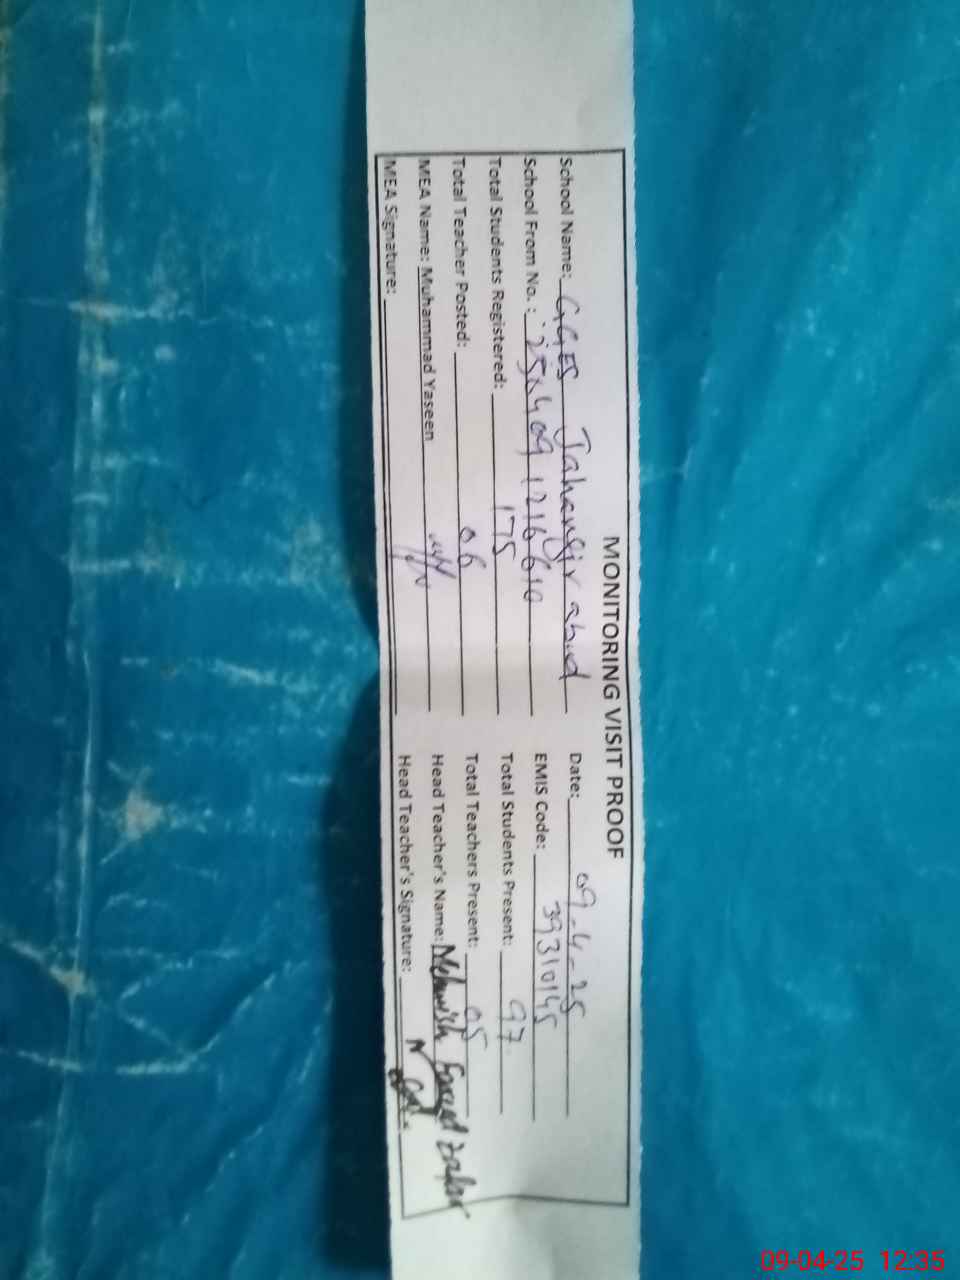 MONITORING VISIT PROOF
School Name: GGES Jahangir abad Date: 09-4-25
School From No.: EMIS Code: 39310145
Total Students Registered: 175 Total Students Present: 97
Total Teacher Posted: 06 Total Teachers Present: 05
MEA Name: Muhammad Yaseen Head Teacher's Name: Mehwish Fareed Zafar
MEA Signature: Head Teacher's Signature:
09-04-25 12:35